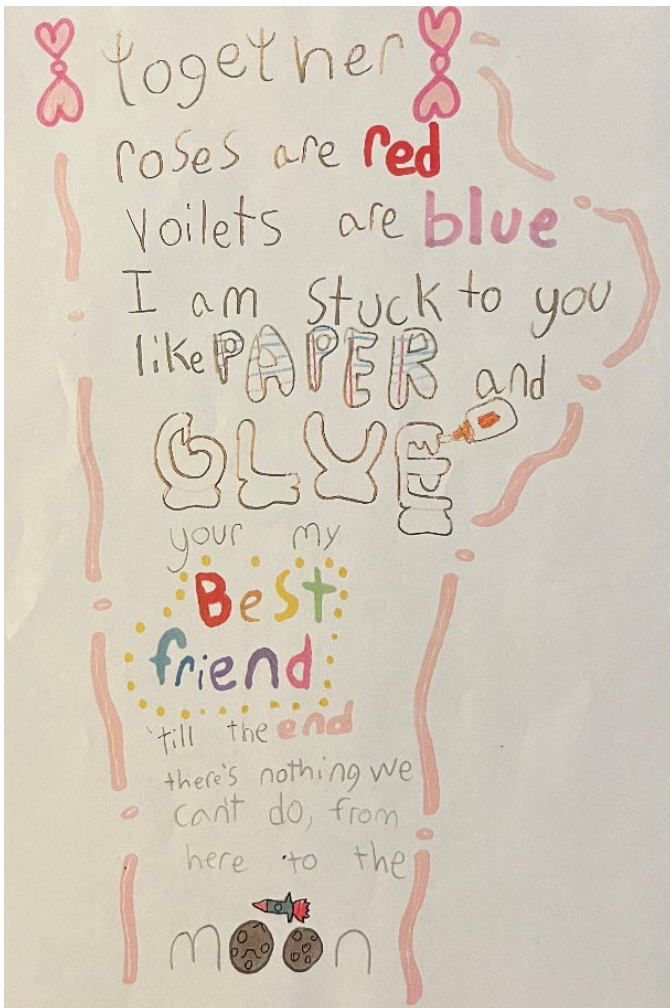 together
roses are red
Voilets are blue
I am stuck to you
like PAPER and
GLUE
your my
Best
friend
'till the end
there's nothing we
can't do, from
here to the
moon